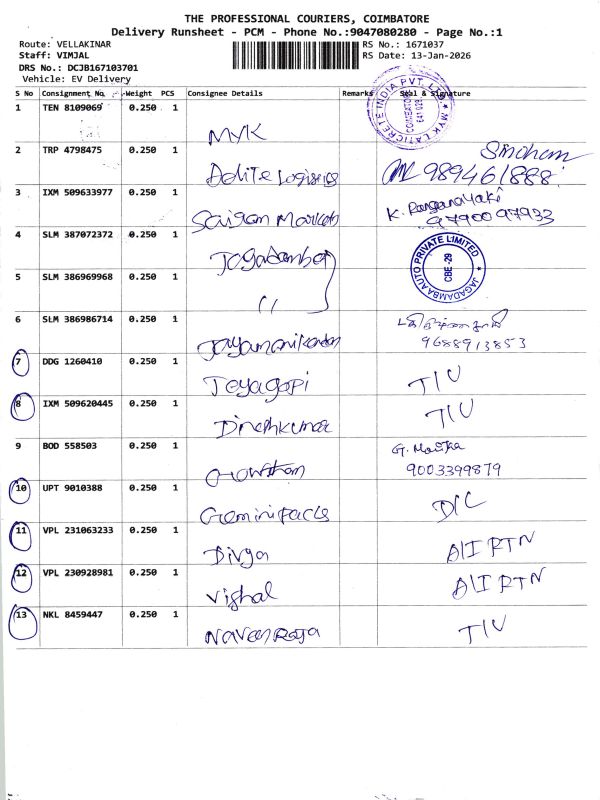 THE PROFESSIONAL COURIERS, COIMBATORE
Delivery Runsheet - PCM - Phone No.:9047080280 - Page No.:1
Route: VELLAKINAR
Staff: VIMJAL
DRS No.: DCJB167103701
Vehicle: EV Delivery
RS No.: 1671037
RS Date: 13-Jan-2026
S No Consignment No Weight PCS Consignee Details Remarks Seal & Signature
1 TEN 8109069 0.250 1 MYK
MYK LATICRETE INDIA PVT. LTD. COIMBATORE
2 TRP 4798475 0.250 1 Delite Logistics 989461888
3 IXM 509633977 0.250 1 Saigan Markets K. Ranganayaki
9790097933
4 SLM 387072372 0.250 1 Jagadamba
JAGADAMBA AUTO PRIVATE LIMITED CBE-29
5 SLM 386969968 0.250 1 ''
6 SLM 386986714 0.250 1 Jayamanikandan
9688913853
7 DDG 1260410 0.250 1 Jeyagopi TIU
8 IXM 509620445 0.250 1 Dineshkumar TIU
9 BOD 558503 0.250 1 Gowtham G.
9003399879
10 UPT 9010388 0.250 1 Gemini Facls D/C
11 VPL 231063233 0.250 1 Divya A/I RTN
12 VPL 230928981 0.250 1 Vishal A/I RTN
13 NKL 8459447 0.250 1 Naveen Raja TIU